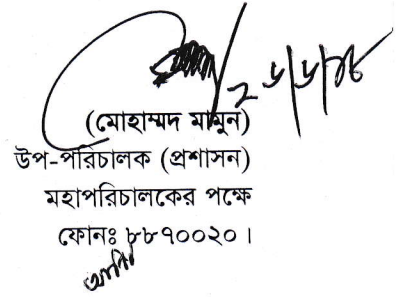 (মোহাম্মদ মামুন)
উপ-পরিচালক (প্রশাসন)
মহাপরিচালকের পক্ষে
ফোনঃ ৮৮৭০০২০।